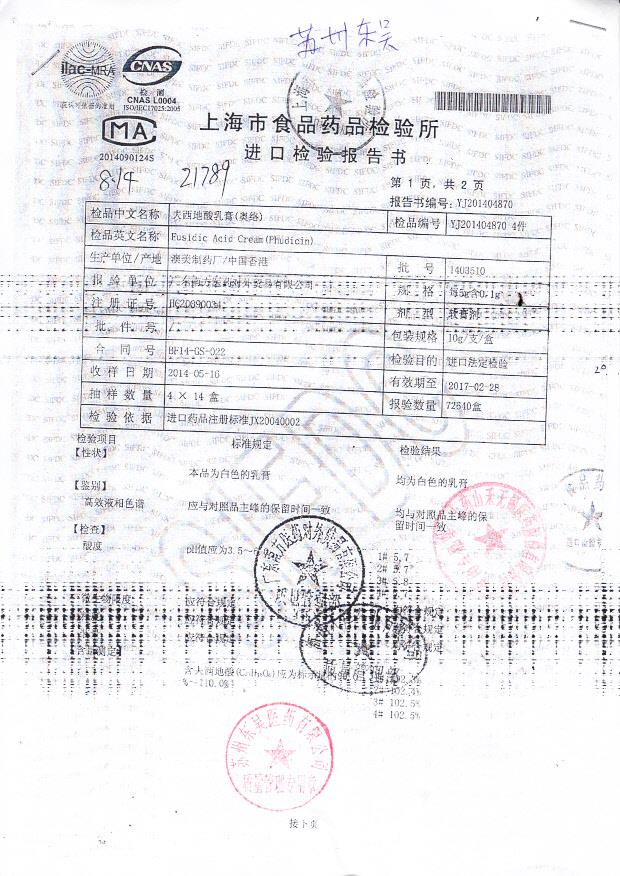 苏州东吴
ilac-MRA
CNAS
检 测
CNAS L0004
ISO/IEC17025:2005
MA
2014090124S
上海市食品药品检验所
进口检验报告书
814 21789
第 1 页, 共 2 页
报告书编号: YJ201404870
检品中文名称 夫西地酸乳膏(奥络) 检品编号 YJ201404870 4件
检品英文名称 Fusidic Acid Cream(Phudicin)
生产单位/产地 澳美制药厂/中国香港 批 号 1403510
报验单位 规 格 每5g含0.1g
注册证号 HC20090034 剂 型 软膏剂
批 件 号 / 包装规格 10g/支/盒
合 同 号 BF14-GS-022 检验目的 进口法定检验
收样日期 2014-05-16 有效期至 2017-02-28
抽样数量 4 × 14 盒 报验数量 72540盒
检验依据 进口药品注册标准JX20040002
检验项目 标准规定 检验结果
【性状】
本品为白色的乳膏 均为白色的乳膏
【鉴别】
高效液相色谱 应与对照品主峰的保留时间一致 均与对照品主峰的保
留时间一致
【检查】
酸度 pH值应为3.5~ 1# 5.7
2# 5.7
3# 5.8
应符合规定
应符合规定
应符合规定
含夫西地酸
%~110.0%
3# 102.5%
4# 102.5%
苏州东吴医药有限公司
质量管理专用章
接下页